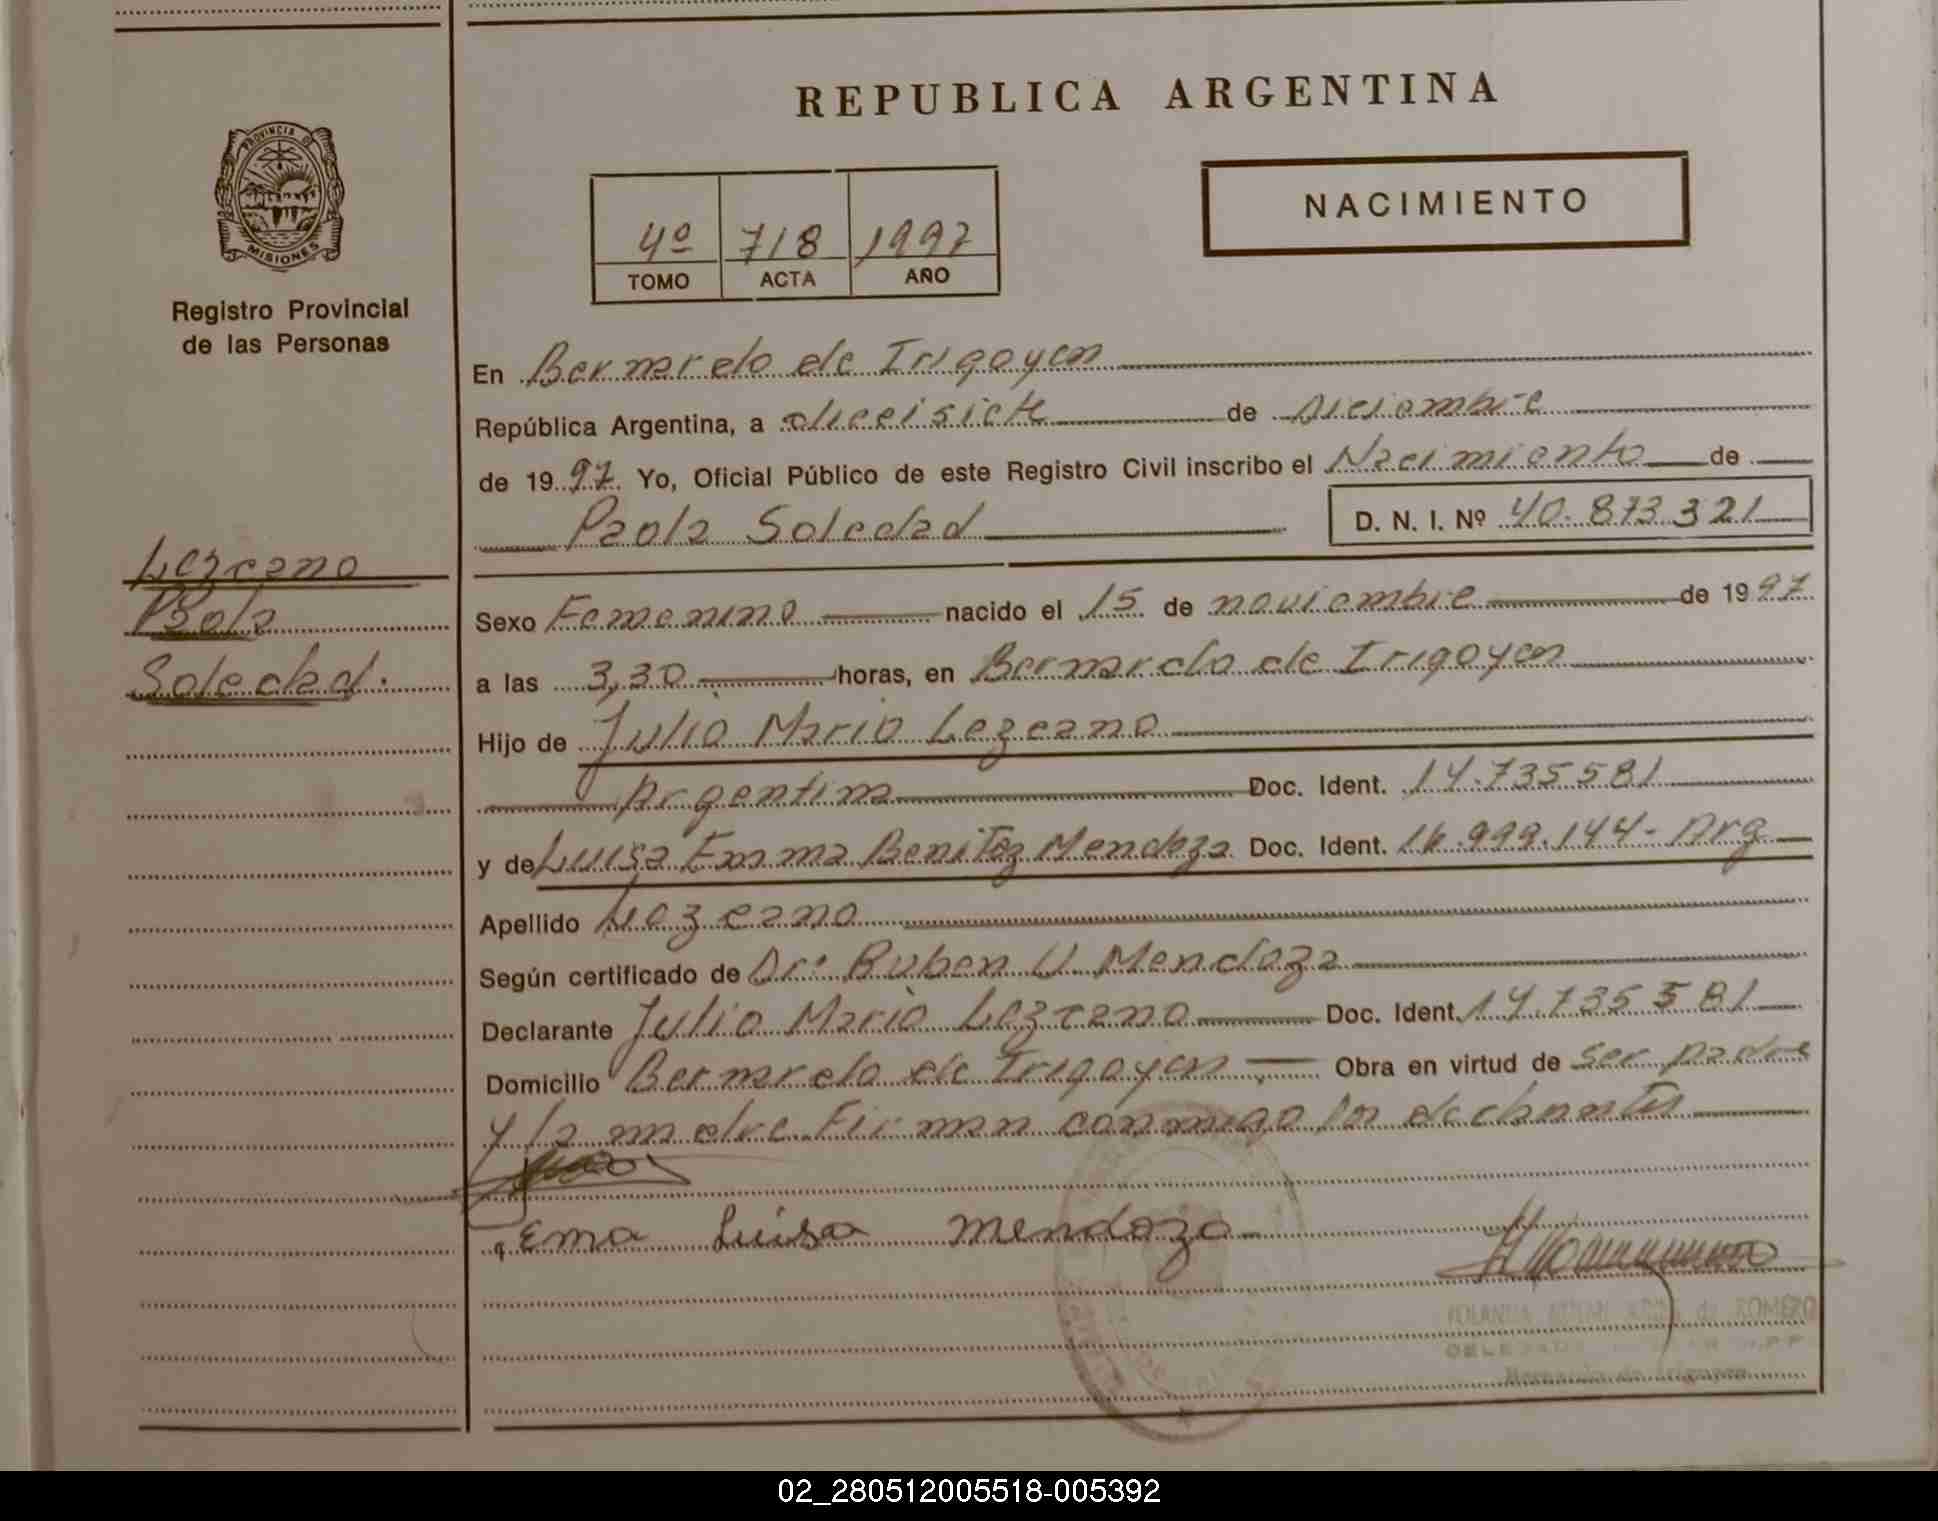 REPUBLICA ARGENTINA
PROVINCIA DE
MISIONES
Registro Provincial
de las Personas
NACIMIENTO
4º 718 1997
TOMO ACTA AÑO
En Bernardo de Irigoyen
República Argentina, a diecisiete de Diciembre
de 1997 Yo, Oficial Público de este Registro Civil inscribo el Nacimiento de
Paola Soledad D. N. I. Nº 40.873.321
Lezcano
Paola
Soledad.
Sexo Femenino nacido el 15 de noviembre de 1997
a las 3,30 horas, en Bernardo de Irigoyen
Hijo de Julio Mario Lezcano
Argentina Doc. Ident. 14.735581
y de Luisa Emma Benitez Mendoza Doc. Ident. 16.999.144- Arg
Apellido Lezcano
Según certificado de Dr. Ruben U. Mendoza
Declarante Julio Mario Lezcano Doc. Ident. 14.735581
Domicilio Bernardo de Irigoyen Obra en virtud de ser padre
y la madre Firman conmigo los
Ema Luisa Mendoza
de ROMERO
Bernardo de Irigoyen
02_280512005518-005392